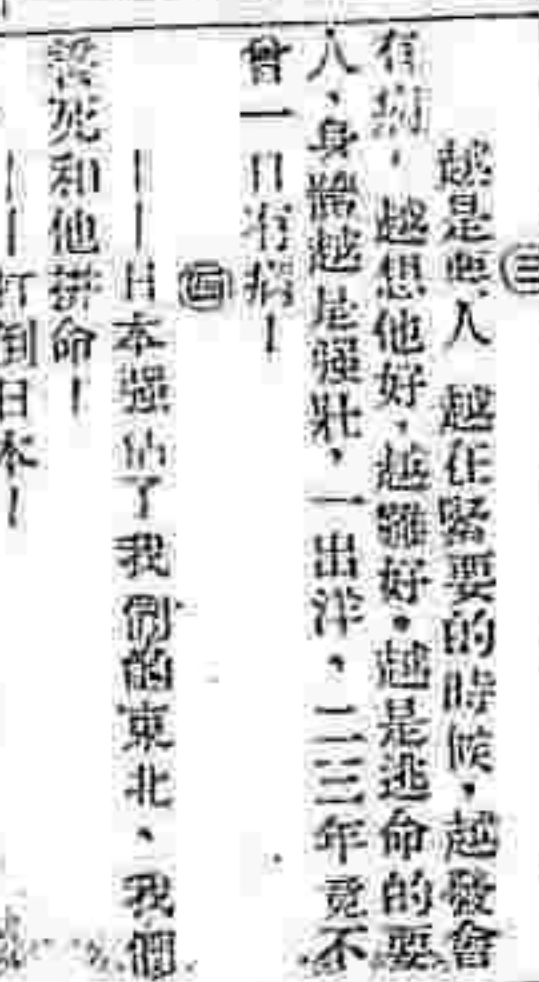 ㊂
越是要人 越在緊要的時候，越發會
有病，越想他好，越難好。越是逃命的要
人、身體越是强壯，一出洋、二三年竟不
曾一日有病！
㊃
——日本强佔了我們的東北、我們
誓死和他拼命！
——打倒日本！